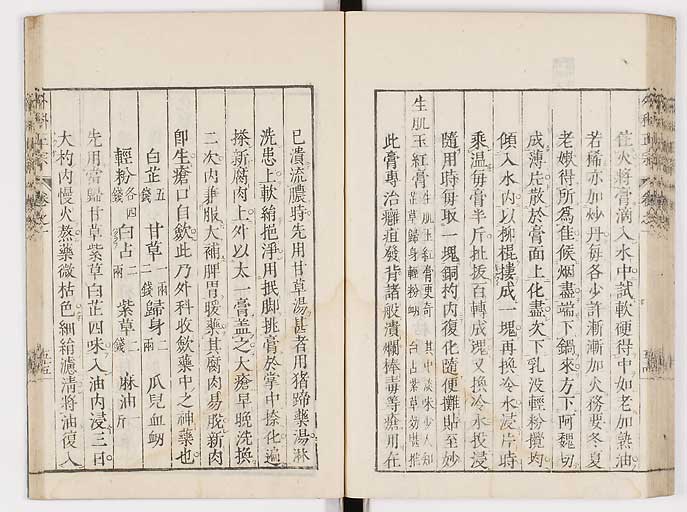 住火將膏滴入水中試軟硬得中如老加熟油
若稀亦加炒丹每各少許漸漸加火務要冬夏
老嫩得所爲佳候烟盡端下鍋來方下阿魏切
成薄片放於膏面上化盡次下乳沒輕粉攪均
傾入水內以柳棍摟成一塊再換冷水浸片時
乘温每膏半斤扯拔百轉成塊又換冷水投浸
隨用時每取一塊銅杓內復化隨便攤貼至妙
生肌玉紅膏 生肌玉紅膏更奇 其中淡味少人知
芷草歸身輕粉竭 白占紫草効堪推
此膏專治癰疽發背諸般潰爛棒毒等瘡用在
已潰流膿時先用甘草湯甚者用猪蹄藥湯淋
洗患上軟絹挹淨用抿脚挑膏於掌中捺化遍
搽新腐肉上外以太一膏蓋之大瘡早晚洗換
二次內兼服大補脾胃暖藥其腐肉易脫新肉
卽生瘡口自斂此乃外科收斂藥中之神藥也
白芷五錢 甘草一兩二錢 歸身二兩 瓜兒血竭
輕粉各四錢 白占二兩 紫草二錢 麻油一斤
先用當歸甘草紫草白芷四味入油內浸三日
大杓內慢火熬藥微枯色細絹濾清將油復入